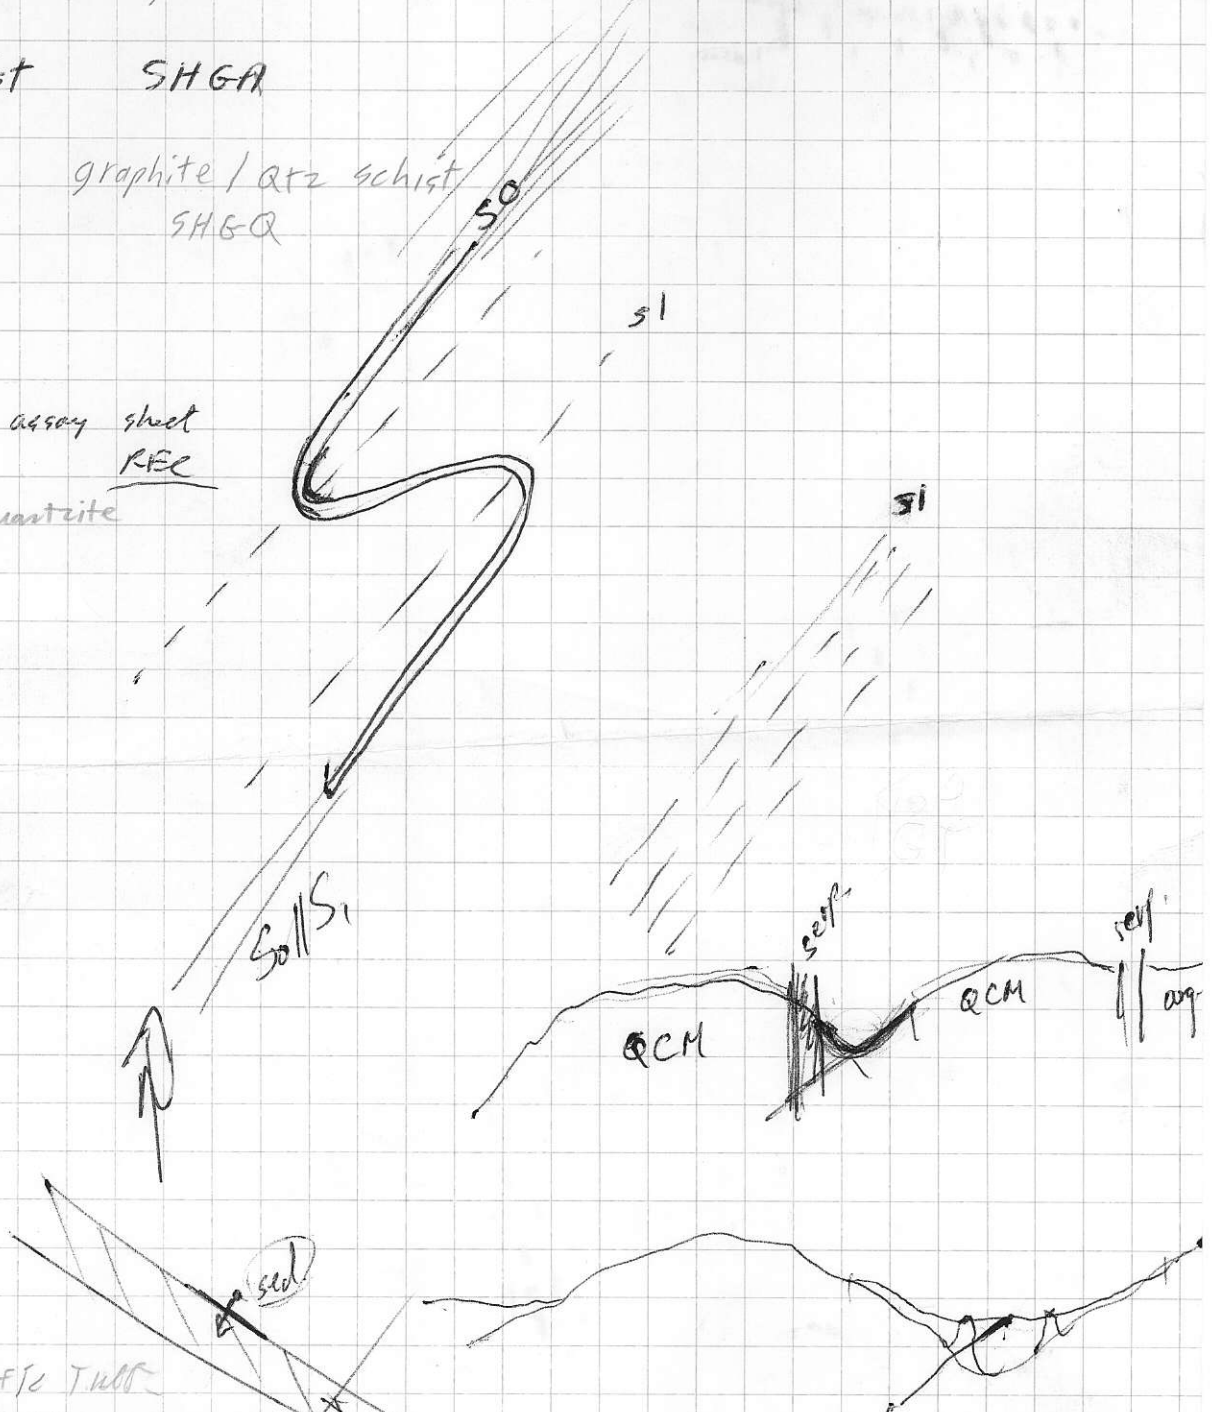 SHGA
graphite / Qtz schist
SHGQ
S0
S1
assay sheet
REE
S1
So||S1
serp.
serp.
QCM
QCM
sed
Tuff